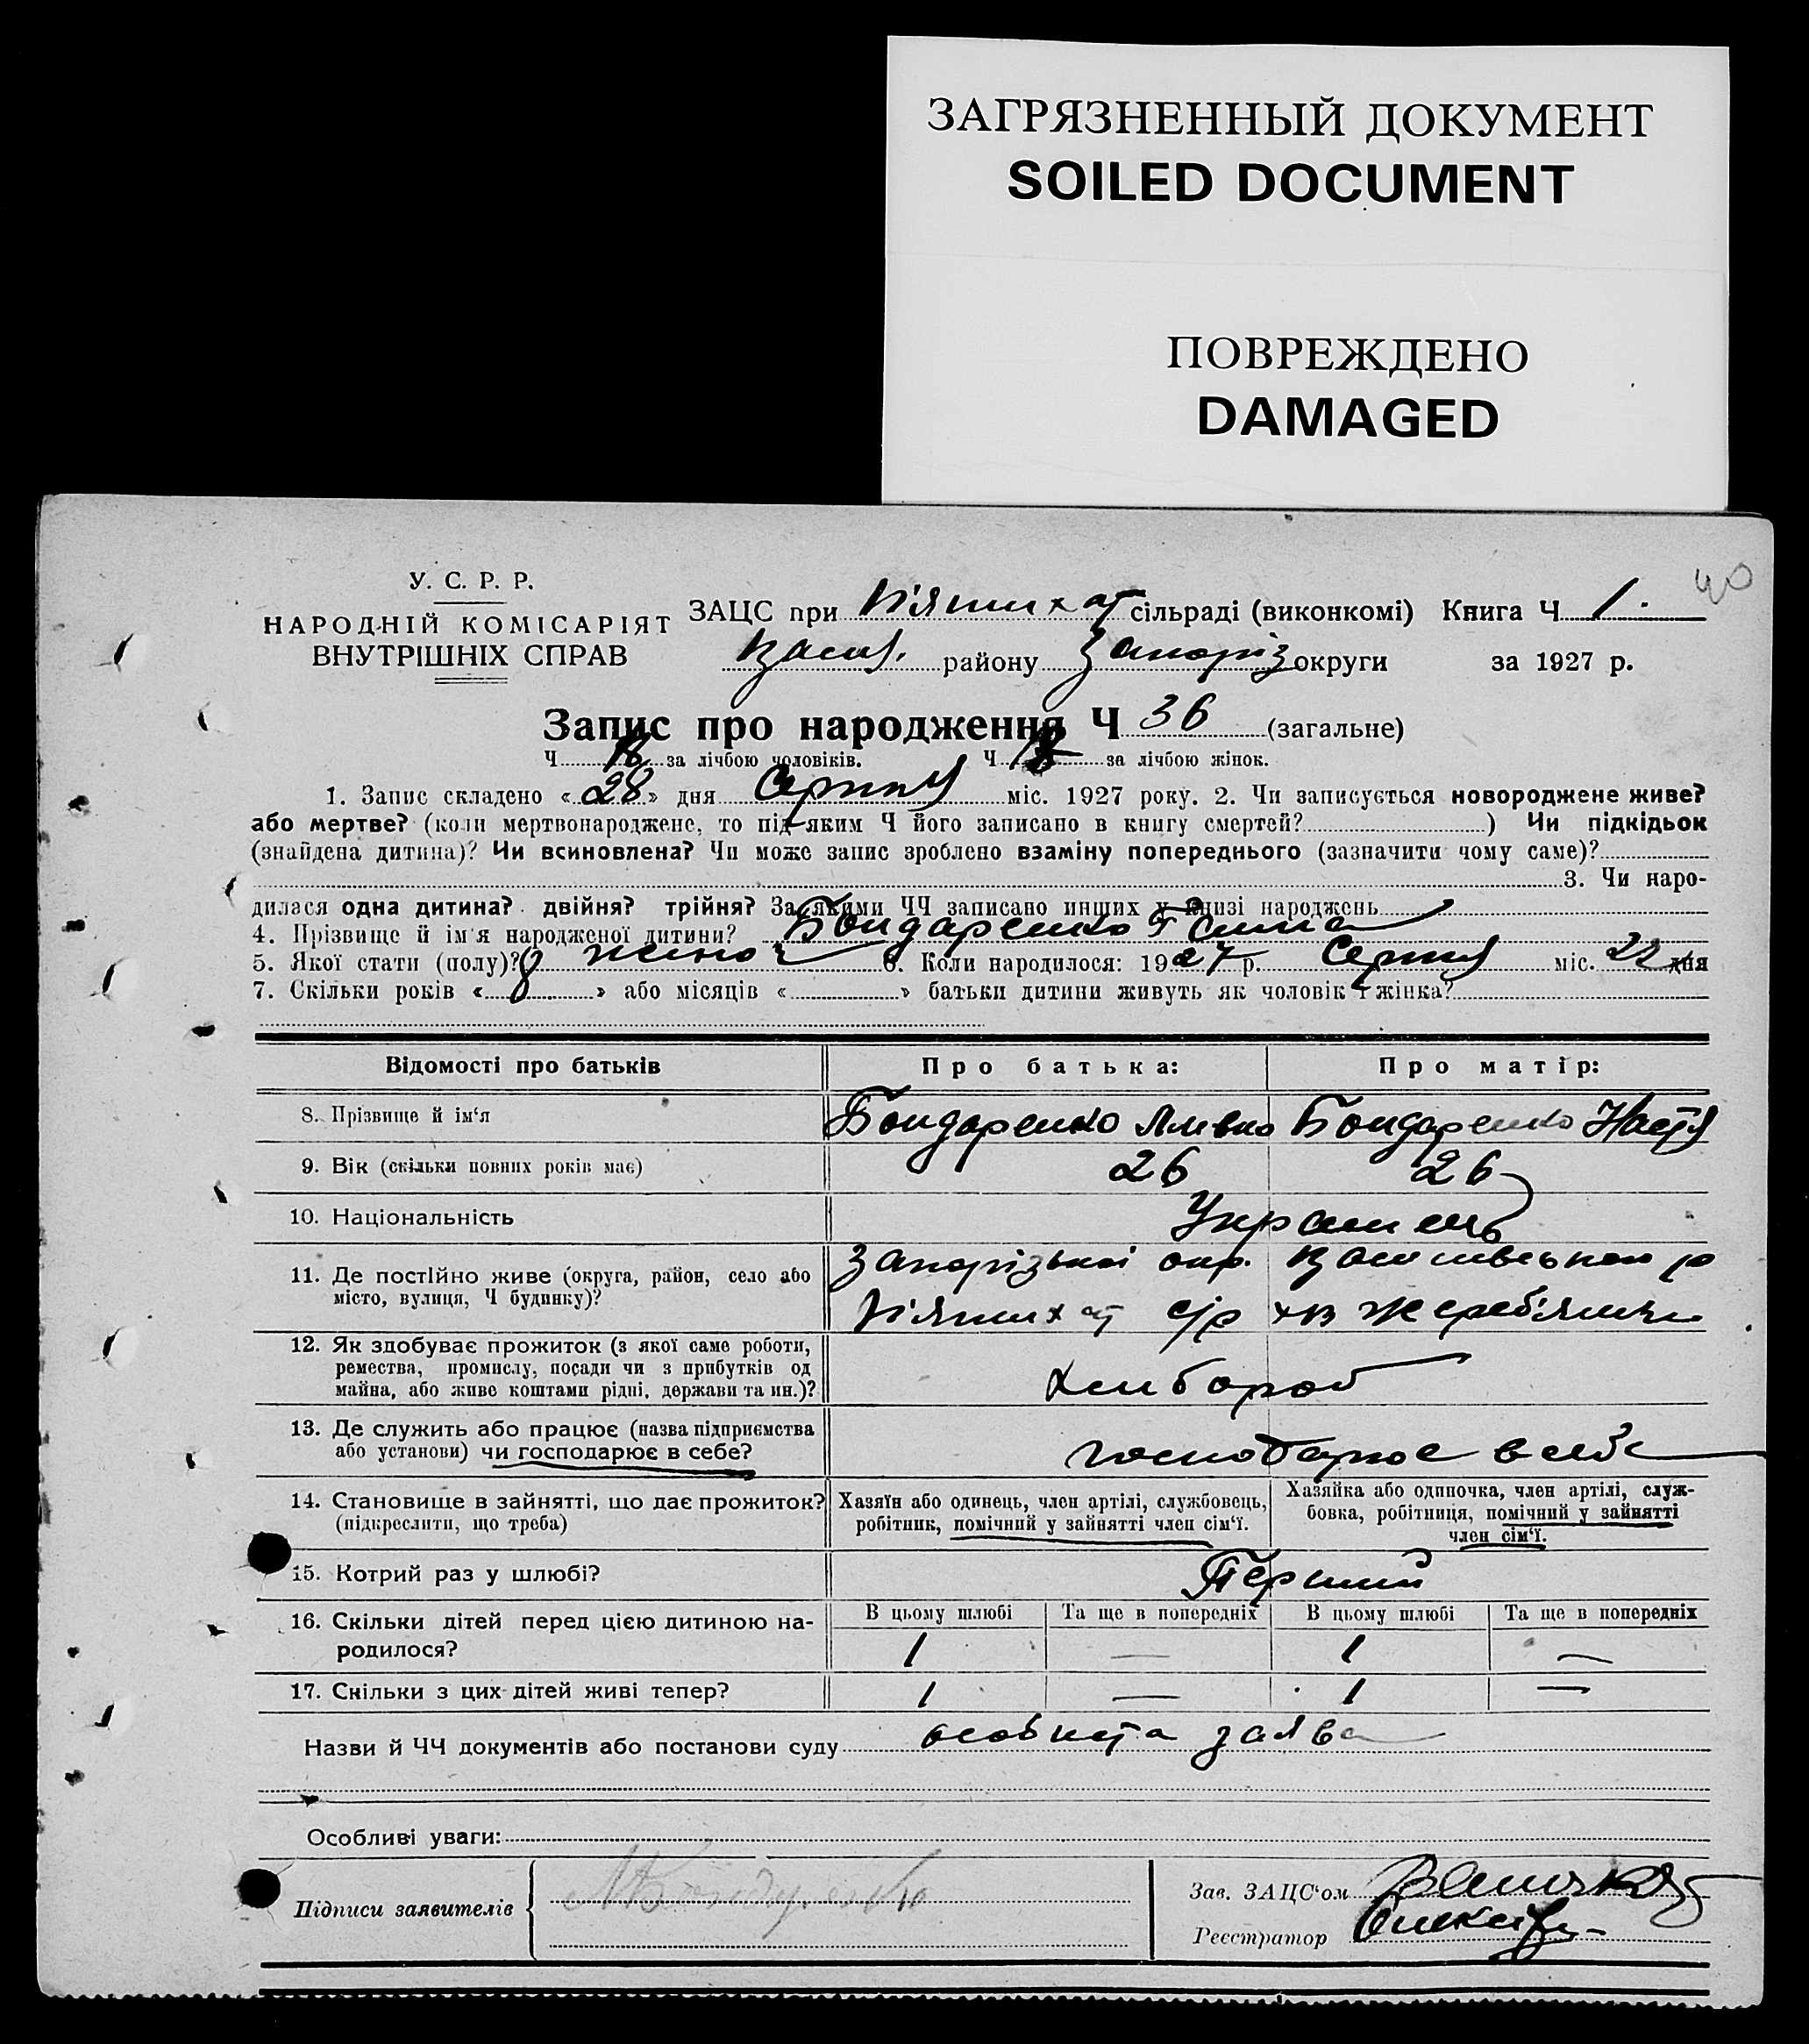 ЗАГРЯЗНЕННЫЙ ДОКУМЕНТ
SOILED DOCUMENT
ПОВРЕЖДЕНО
DAMAGED
40
У. С. Р. Р.
НАРОДНІЙ КОМІСАРІЯТ
ВНУТРІШНІХ СПРАВ
ЗАЦС при П'ятихат сільраді (виконкомі) Книга Ч 1.
Васил. району Запоріз округи за 1927 р.
Запис про народження Ч 36 (загальне)
Ч 18 за лічбою чоловіків. Ч за лічбою жінок.
1. Запис складено «28» дня Серпня міс. 1927 року. 2. Чи записується новороджене живе?
або мертве? (коли мертвонароджене, то під яким Ч його записано в книгу смертей? ) Чи підкідьок
(знайдена дитина)? Чи всиновлена? Чи може запис зроблено взаміну попереднього (зазначити чому саме)?
3. Чи наро-
дилася одна дитина? двійня? трійня? За якими ЧЧ записано инших у книзі народжень
4. Прізвище й ім'я народженої дитини? Бондаренко Ганна
5. Якої стати (полу)? жіноч 6. Коли народилося: 1927 р. Серпня міс. 22 дня
7. Скільки років « 8 » або місяців « » батьки дитини живуть як чоловік і жінка?
Відомості про батьків
Про батька:
Про матір:
8. Прізвище й ім'я
Бондаренко Бондаренко Настя
9. Вік (скільки повних років має)
26 26
10. Національність
Українць
11. Де постІйно живе (округа, район, село або
місто, вулиця, Ч будинку)?
Запорізької окр. Василівського р
П'ятихат с/р х-в Жереб'янки
12. Як здобуває прожиток (з якої саме роботи,
ремества, промислу, посади чи з прибутків од
майна, або живе коштами рідні, держави та ин.)?
Хлібороб
13. Де служить або працює (назва підприємства
або установи) чи господарює в себе?
господарює в себе
14. Становище в зайнятті, що дає прожиток?
(підкреслити, що треба)
Хазяїн або одинець, член артілі, службовець,
робітник, помічний у зайнятті член сім'ї.
Хазяйка або одиночка, член артілі, служ-
бовка, робітниця, помічний у зайнятті
член сім'ї.
15. Котрий раз у шлюбі?
Перший
16. Скільки дітей перед цією дитиною на-
родилося?
В цьому шлюбі Та ще в попередніх В цьому шлюбі Та ще в попередніх
1 — 1 —
17. Скільки з цих дітей живі тепер?
1 — 1 —
Назви й ЧЧ документів або постанови суду особиста заява
Особливі уваги:
Підписи заявителів
Зав. ЗАЦС'ом
Реєстратор